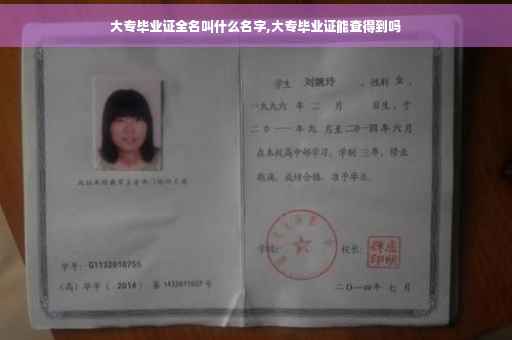 大专毕业证全名叫什么名字,大专毕业证能查得到吗
学生 刘婉玲 ,性别 女 ,
一九九六 年 二 月 日生,于
二〇一一 年 九 月至二〇一四年 六 月
在本校高中部学习,学制 三 年,修业
期满,成绩合格,准予毕业。
学校: 校长:
学号: G1132010755
(高)毕字( 2014 )第 1432011007 号
二〇一四年 七 月